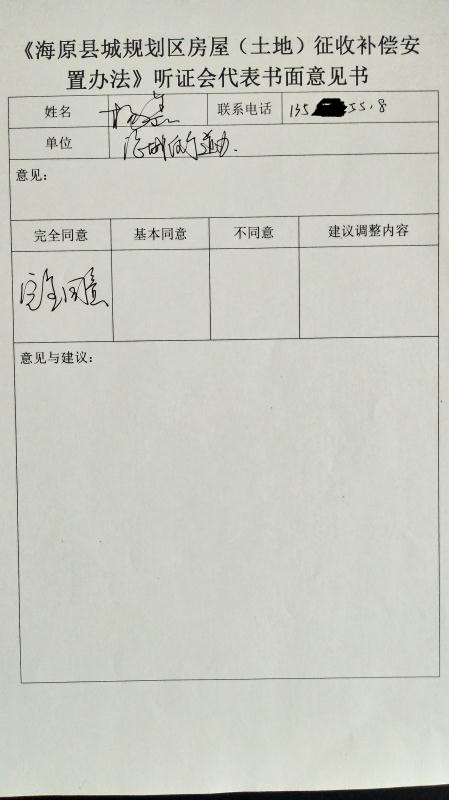 《海原县城规划区房屋（土地）征收补偿安
置办法》听证会代表书面意见书
姓名 联系电话 135
单位
意见：
完全同意 基本同意 不同意 建议调整内容
完全同意
意见与建议：